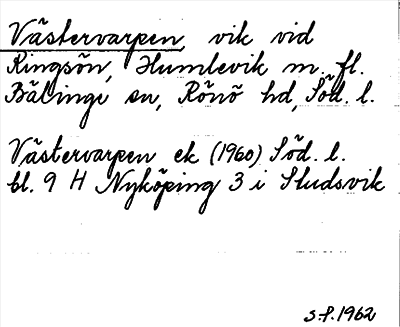 Västervarpen, vik vid
Ringsön, Humlevik m. fl.
Bälinge sn, Rönö hd, Söd. l.
Västervarpen ek (1960) Söd. l.
bl. 9 H Nyköping 3 i Studsvik
S.f. 1962